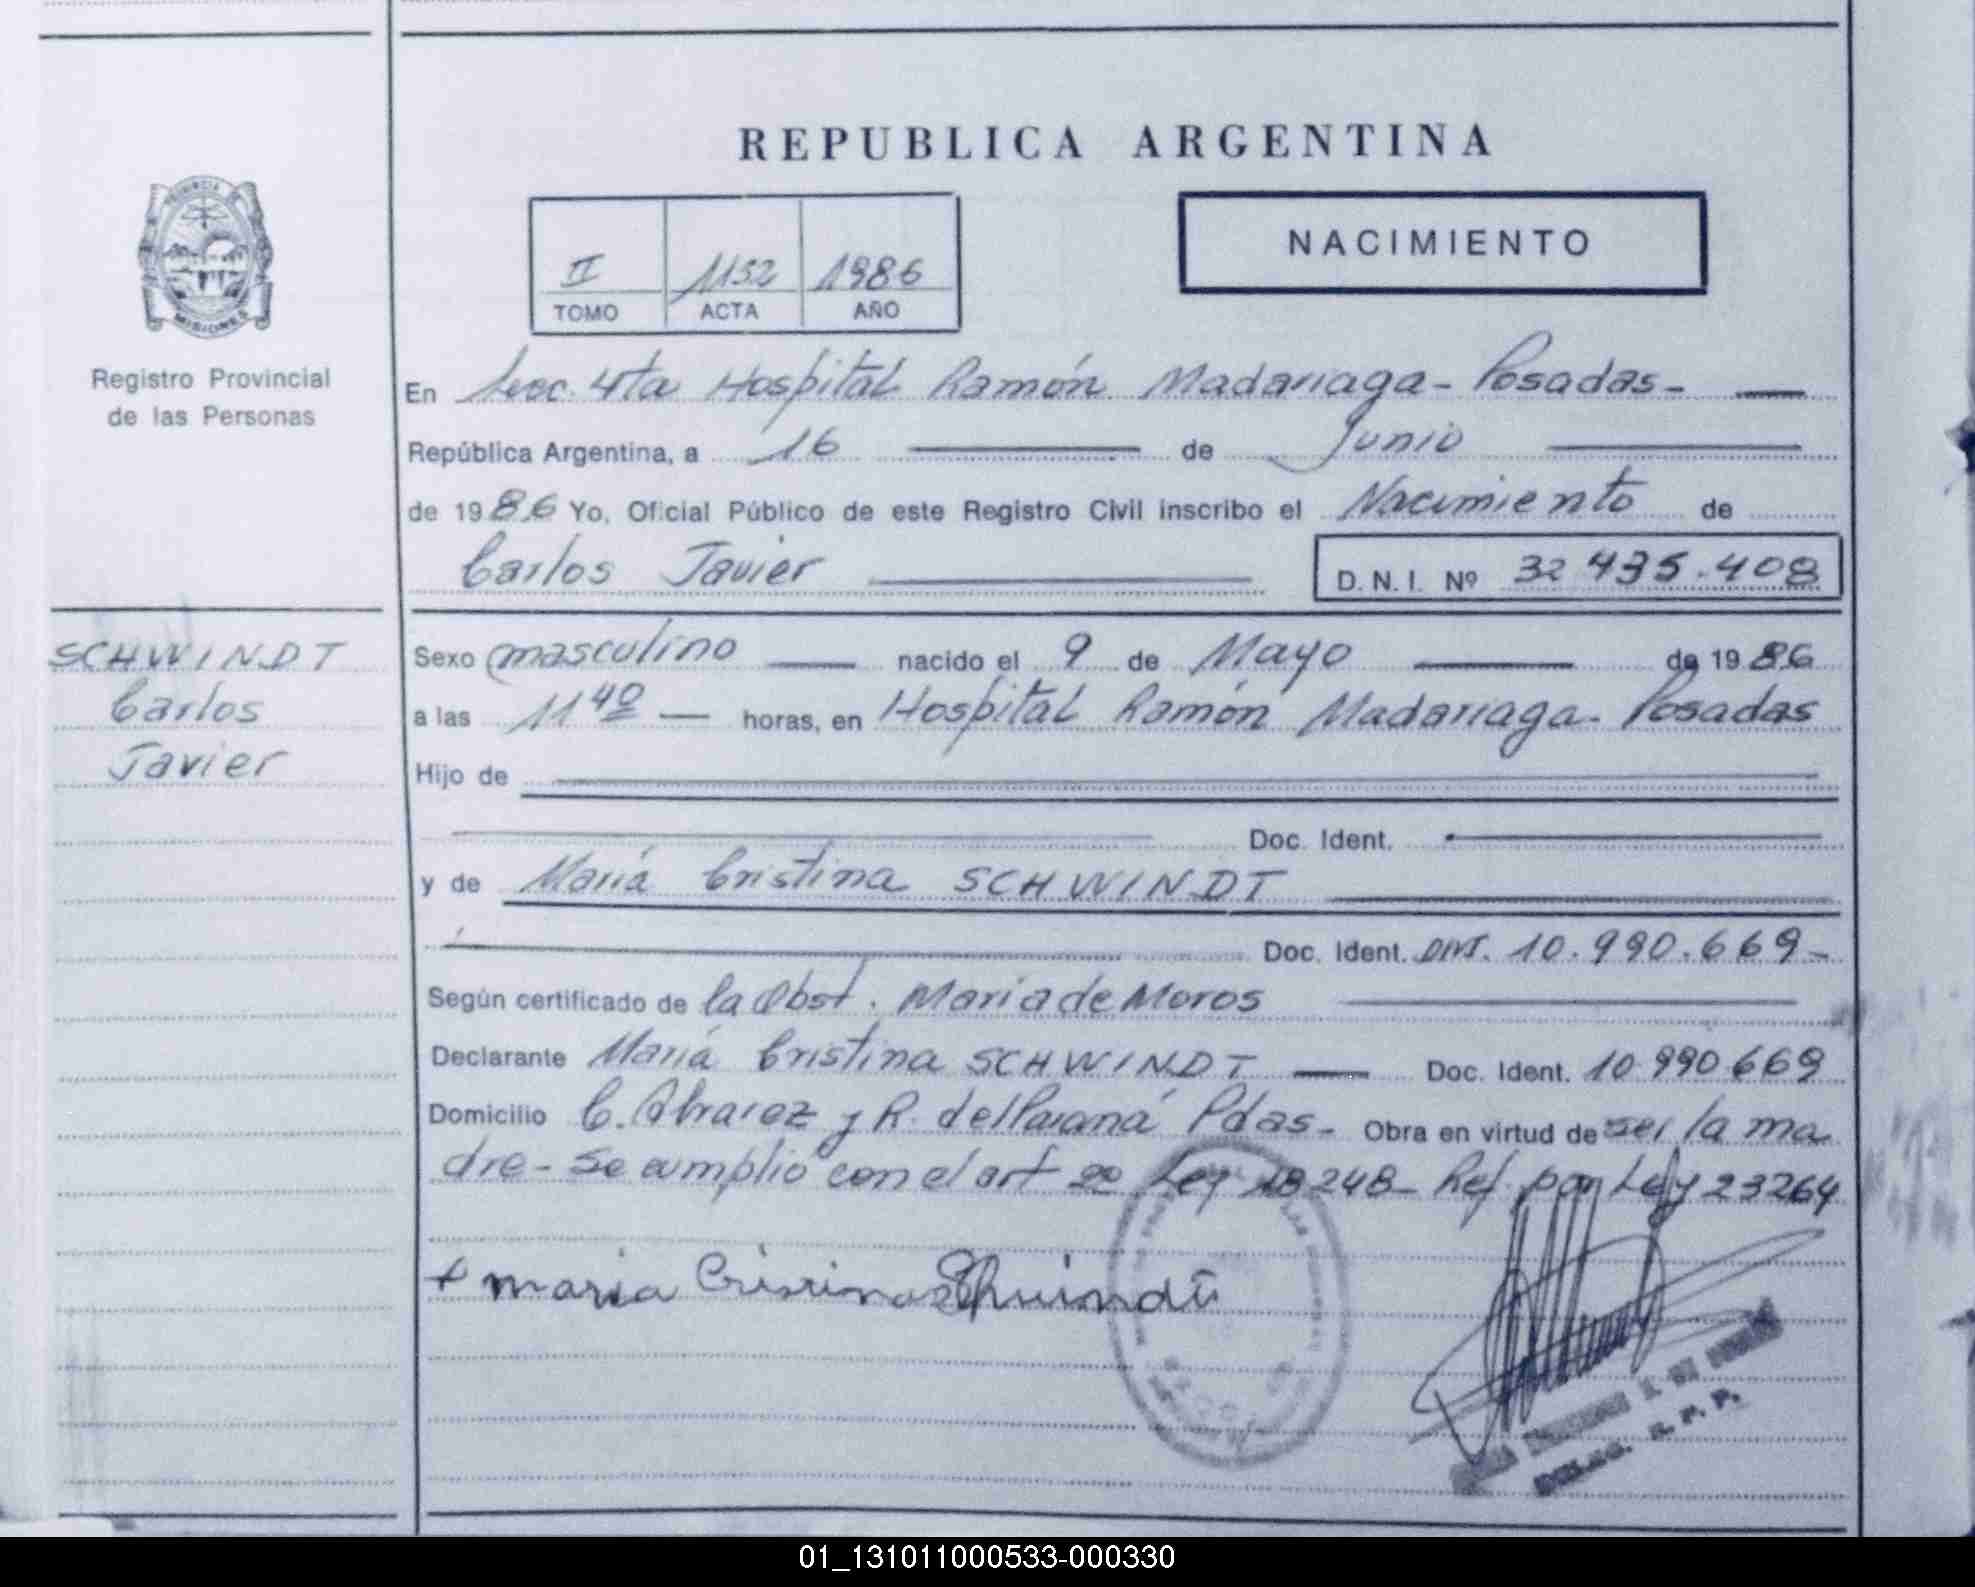 REPUBLICA ARGENTINA
NACIMIENTO
II 1152 1986
TOMO ACTA AÑO
PROVINCIA
MISIONES
Registro Provincial
de las Personas
En Secc. 4ta Hospital Ramón Madariaga - Posadas -
República Argentina, a 16 de Junio
de 1986 Yo, Oficial Público de este Registro Civil inscribo el Nacimiento de
Carlos Javier D.N.I. Nº 32 435.408
SCHWINDT
Carlos
Javier
Sexo masculino nacido el 9 de Mayo de 1986
a las 11 40 horas, en Hospital Ramón Madariaga - Posadas
Hijo de
Doc. Ident.
y de María Cristina SCHWINDT
Doc. Ident. DNI. 10.990.669 -
Según certificado de la Obst. Maria de Moros
Declarante María Cristina SCHWINDT Doc. Ident. 10.990.669
Domicilio C. Alvarez y R. del Paraná Pdas - Obra en virtud de ser la ma
dre - se cumplió con el art 2º Ley 18248 - Ref. por Ley 23264
+ maria Crisrina Schuindt
DELEG. R. P. P.
01_131011000533-000330